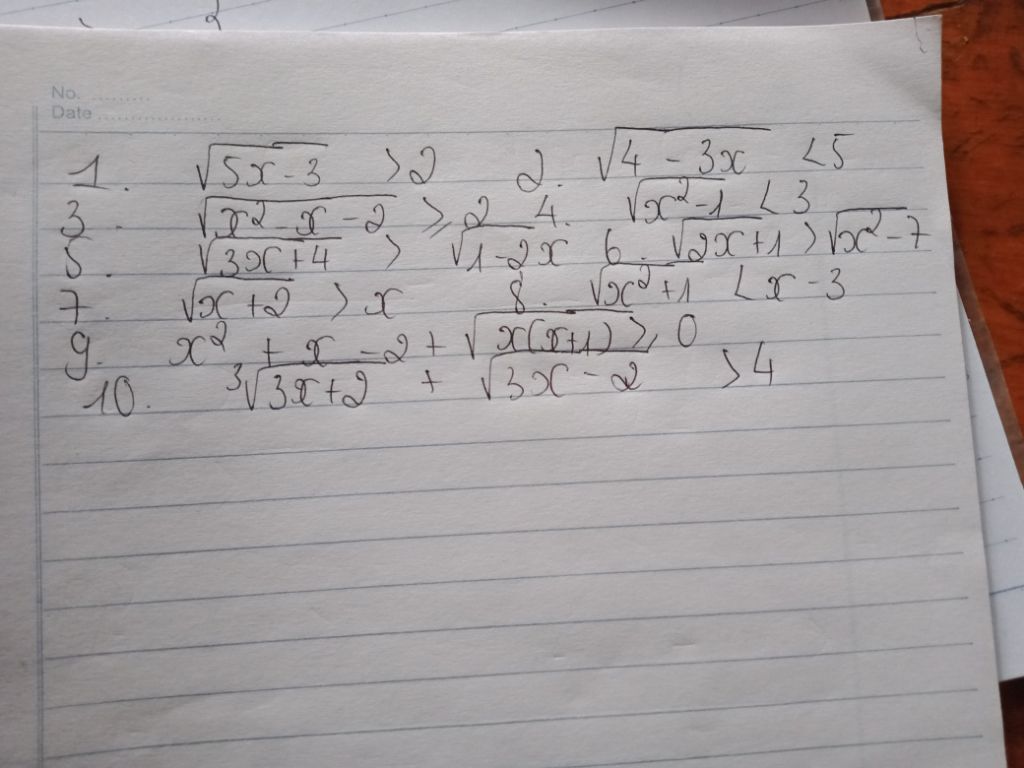 No. ..........
Date .....................
1. √(5x-3) > 2 2. √(4 - 3x) < 5
3. √(x² - x - 2) ≥ 2 4. √(x² - 1) < 3
5. √(3x+4) > √(1-2x) 6. √(2x+1) > √(x²-7)
7. √(x+2) > x 8. √(x²+1) < x - 3
9. x² + x - 2 + √(x(x+1)) ≥ 0
10. ³√(3x+2) + √(3x-2) > 4